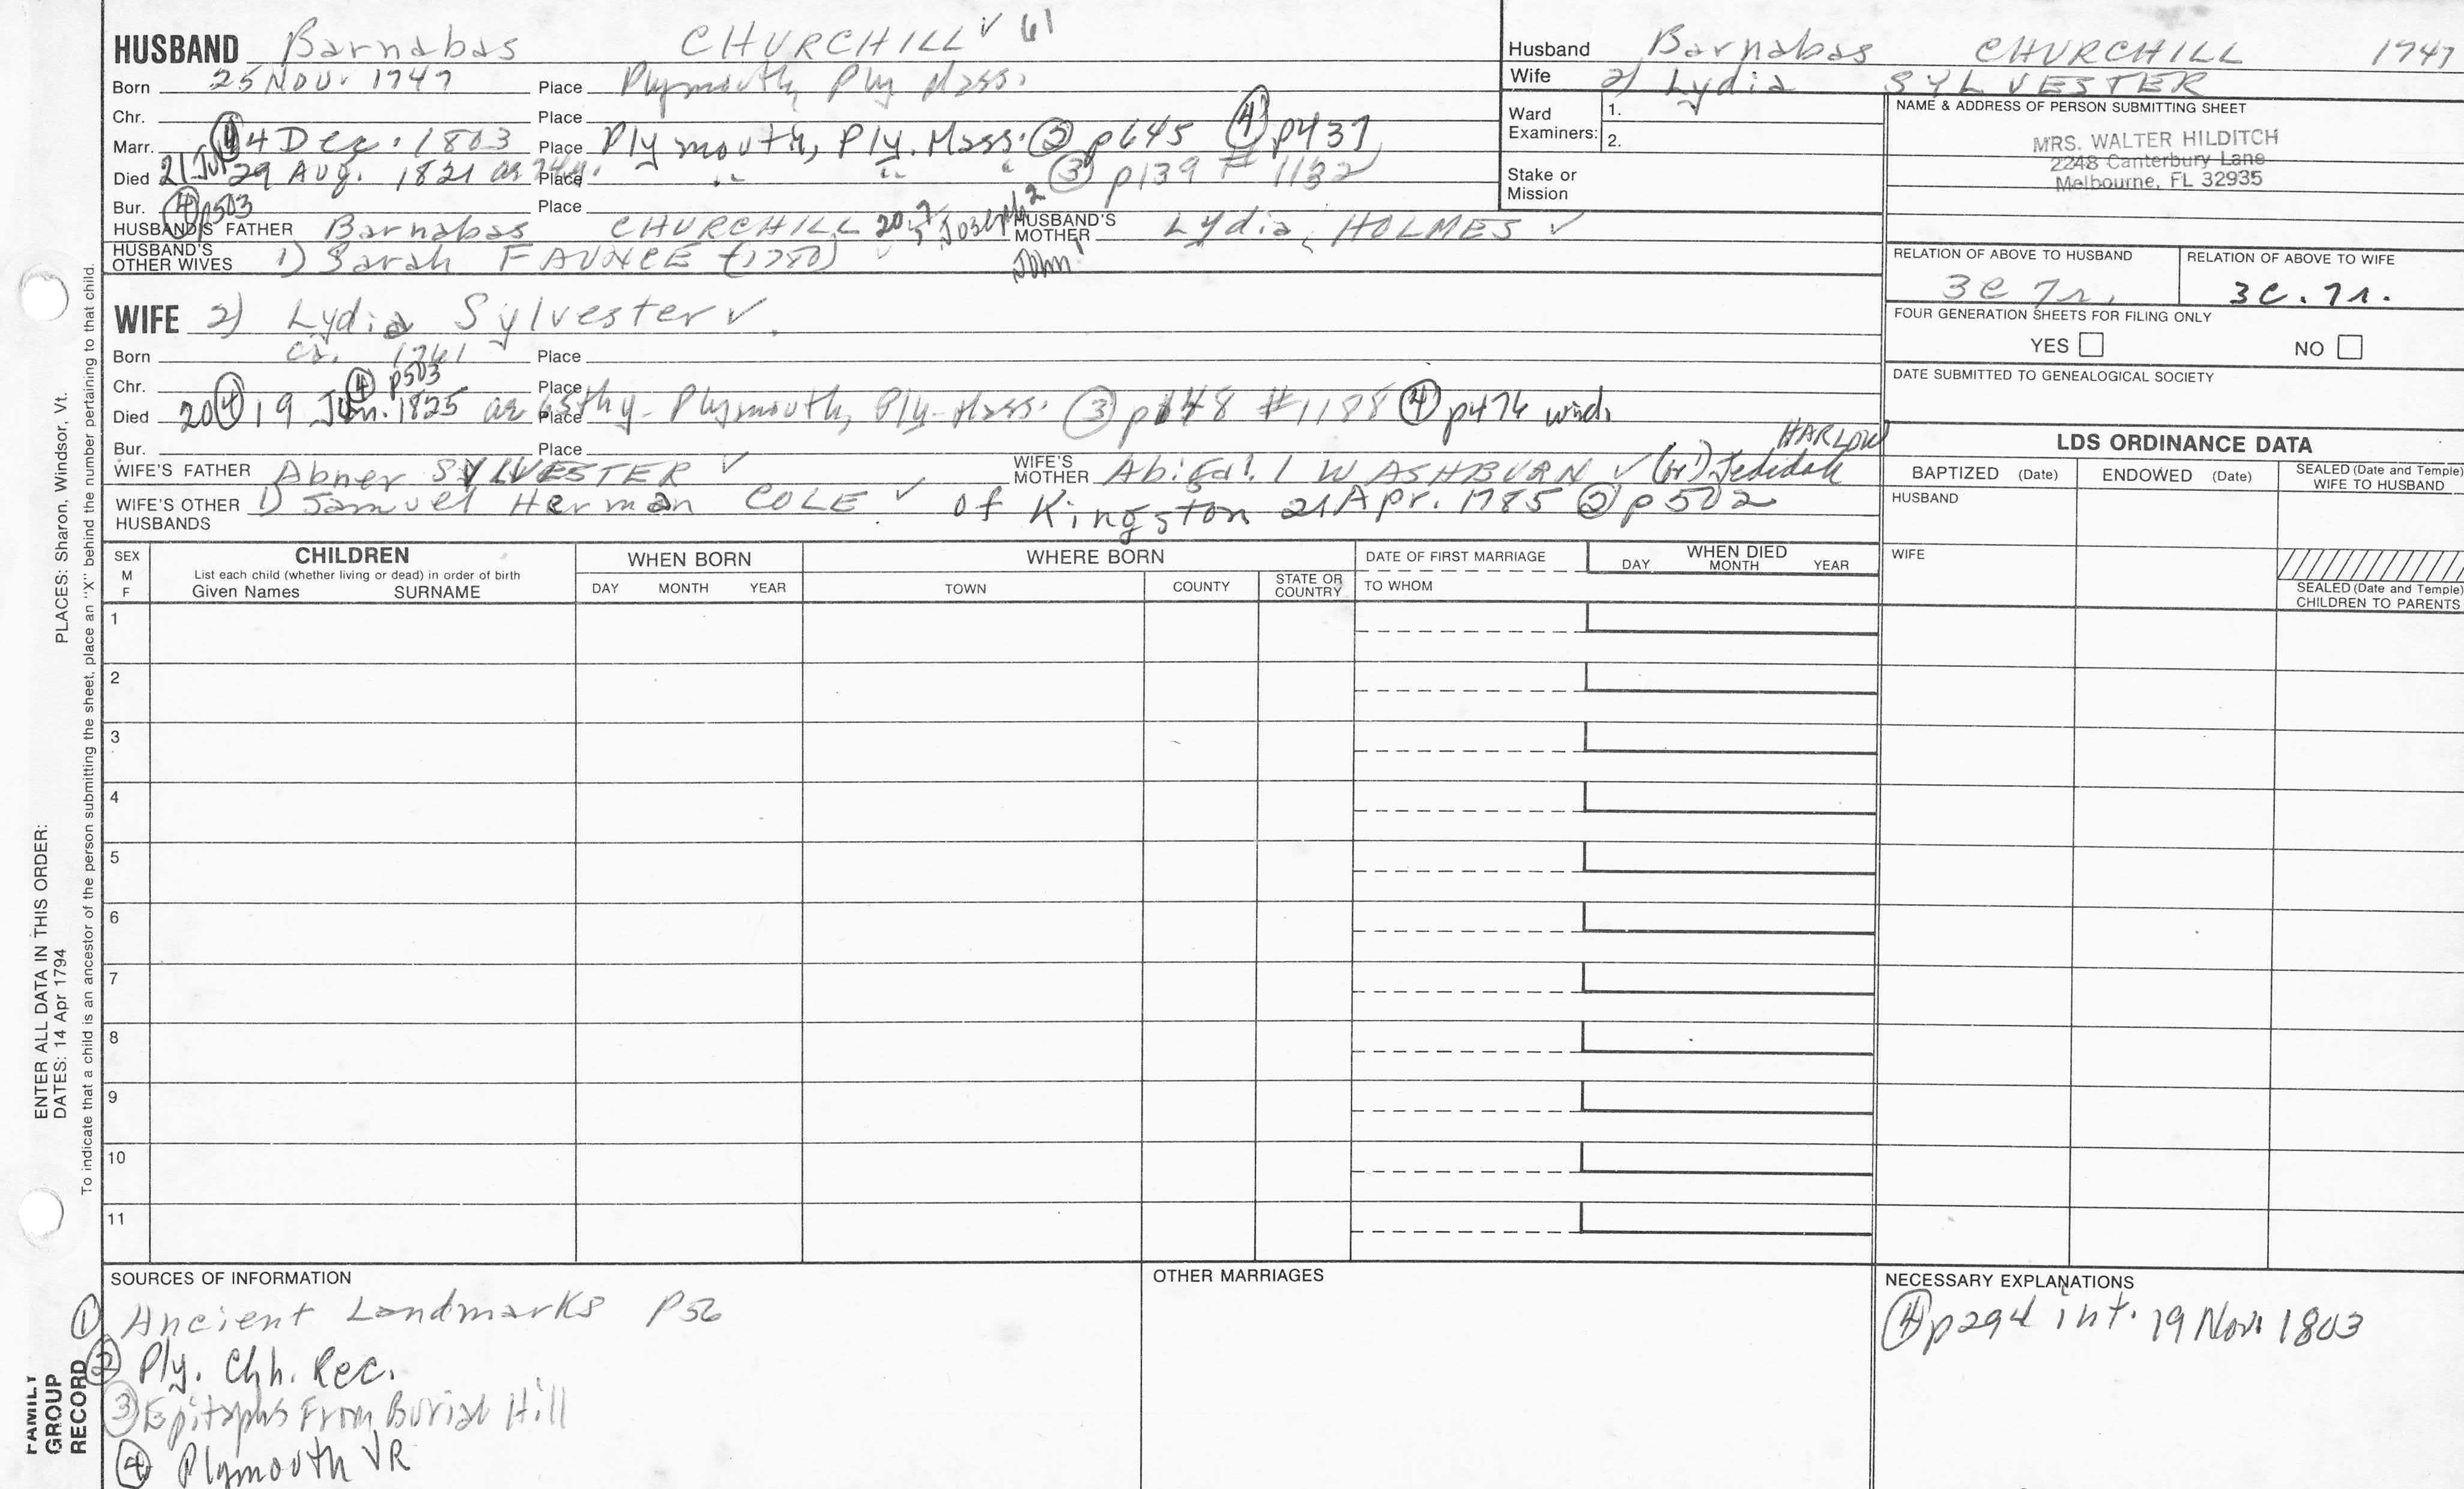 HUSBAND Barnabas CHURCHILL ✓ 61
Born 25 Nov. 1747 Place Plymouth, Ply Mass.
Chr. Place
Marr. ④ 4 Dec. 1803 Place Plymouth, Ply. Mass. ② p645 ④ p437
Died 21 Jul 29 Aug. 1821 ae 74y. Place " " " ③ p139 # 1132
Bur. ④ p503 Place
HUSBAND'S FATHER Barnabas CHURCHILL Joseph 2 John 1 HUSBAND'S MOTHER Lydia HOLMES ✓
HUSBAND'S OTHER WIVES 1) Sarah FAUNCE (1780) ✓
WIFE 2) Lydia Sylvester ✓
Born ca. 1761 Place
Chr. ④ p503 Place
Died 20 ④ 19 Jan. 1825 ae 65thy - Place Plymouth, Ply-Mass. ③ p148 #1188 ④ p476 wid.
Bur. Place
WIFE'S FATHER Abner SYLVESTER ✓ WIFE'S MOTHER Abigail WASHBURN ✓ (or) Jedidah HARLOW
WIFE'S OTHER HUSBANDS 1) Samuel Herman COLE ✓ of Kingston 21 Apr. 1785 ② p502
Husband Barnabas CHURCHILL 1747
Wife 2) Lydia SYLVESTER
Ward Examiners: 1.
2.
Stake or Mission
NAME & ADDRESS OF PERSON SUBMITTING SHEET
MRS. WALTER HILDITCH
2248 Canterbury Lane
Melbourne, FL 32935
RELATION OF ABOVE TO HUSBAND RELATION OF ABOVE TO WIFE
3c 7r. 3c. 7r.
FOUR GENERATION SHEETS FOR FILING ONLY
YES NO
DATE SUBMITTED TO GENEALOGICAL SOCIETY
LDS ORDINANCE DATA
BAPTIZED (Date) ENDOWED (Date) SEALED (Date and Temple) WIFE TO HUSBAND
HUSBAND
WIFE
SEALED (Date and Temple) CHILDREN TO PARENTS
SEX M F
CHILDREN
List each child (whether living or dead) in order of birth
Given Names SURNAME
WHEN BORN
DAY MONTH YEAR
WHERE BORN
TOWN COUNTY STATE OR COUNTRY
DATE OF FIRST MARRIAGE
TO WHOM
WHEN DIED
DAY MONTH YEAR
1
2
3
4
5
6
7
8
9
10
11
SOURCES OF INFORMATION
① Ancient Landmarks P56
② Ply. Chh. Rec.
③ Epitaphs From Burial Hill
④ Plymouth VR
OTHER MARRIAGES
NECESSARY EXPLANATIONS
④ p294 int. 19 Nov. 1803
ENTER ALL DATA IN THIS ORDER:
DATES: 14 Apr 1794 PLACES: Sharon, Windsor, Vt.
To indicate that a child is an ancestor of the person submitting the sheet, place an "X" behind the number pertaining to that child.
FAMILY
GROUP
RECORD